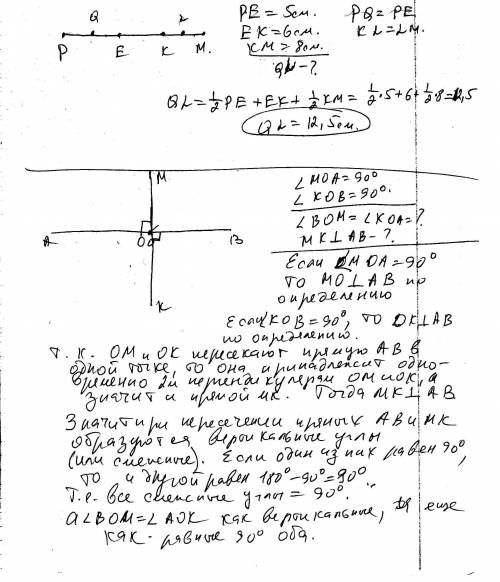 P Q E K L M.
PE = 5см. PQ = PE
EK = 6см KL = LM.
KM = 8см.
QL - ?
QL = 1/2 PE + EK + 1/2 KM = 1/2 · 5 + 6 + 1/2 · 8 = 12,5
QL = 12,5см.
M
A O B
K
∠MOA = 90°
∠KOB = 90°.
∠BOM = ∠KOA = ?
MK ⊥ AB - ?
Если ∠MOA = 90°
то MO ⊥ AB по
определению
Если ∠KOB = 90°, то OK ⊥ AB
по определению.
Т.к. OM и OK пересекают прямую AB в
одной точке, то она принадлежит одно-
временно 2м перпендикулярам OM и OK, а
значит и прямой MK. Тогда MK ⊥ AB
Значит при пересечении прямых AB и MK
образуются вертикальные углы
(или смежные). Если один из них равен 90°,
то и другой равен 180° - 90° = 90°
Т.е. все смежные углы = 90°.
а ∠BOM = ∠AOK как вертикальные, еще
как равные 90° оба.